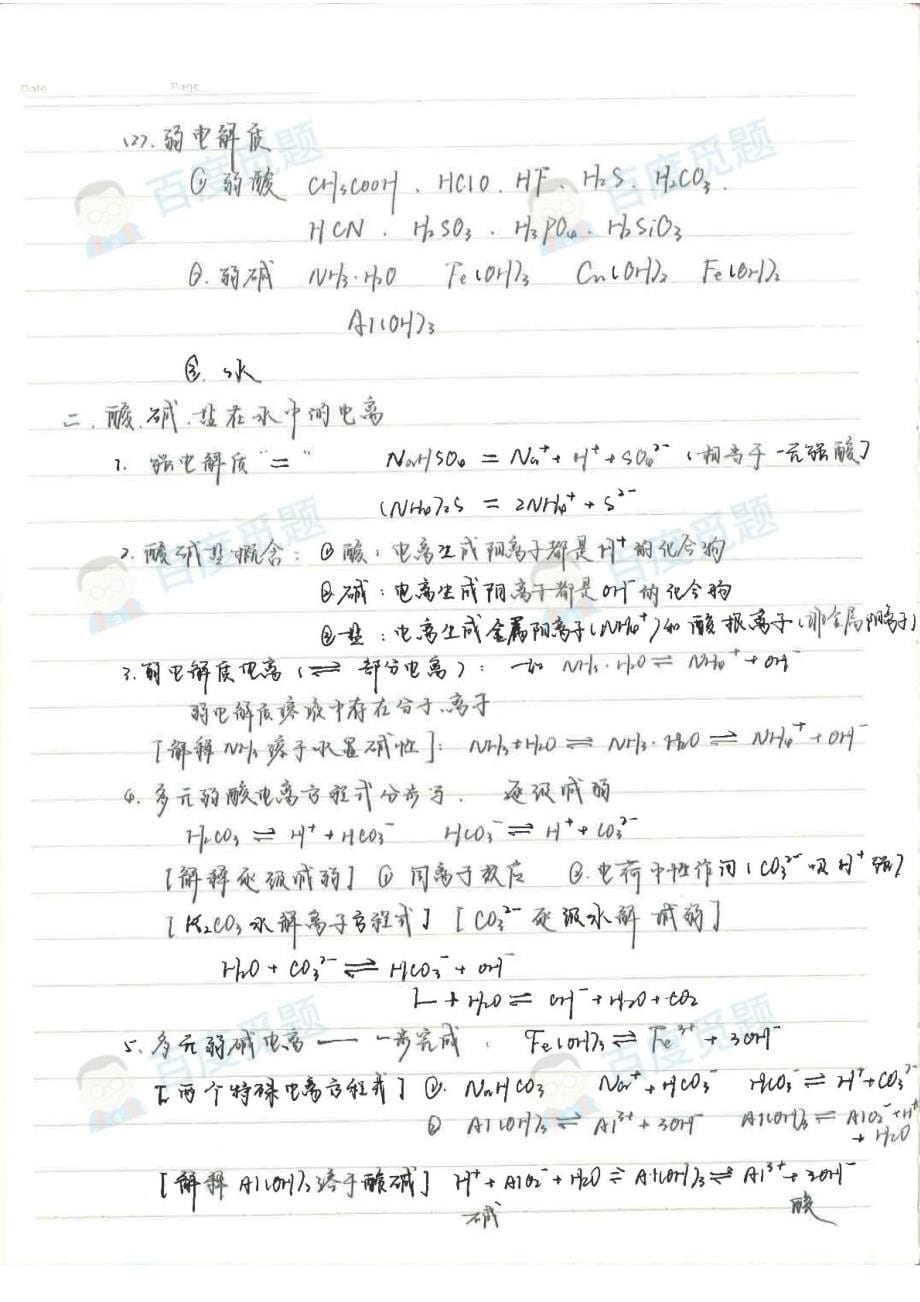 Date Page
(2). 弱电解质
① 弱酸 CH₃COOH、HClO、HF、H₂S、H₂CO₃、
HCN、H₂SO₃、H₃PO₄、H₂SiO₃
②. 弱碱 NH₃·H₂O Fe(OH)₃ Cu(OH)₂ Fe(OH)₂
Al(OH)₃
③. 水
二、酸、碱、盐在水中的电离
1. 强电解质 "=" NaHSO₄ = Na⁺ + H⁺ + SO₄²⁻ (相当于一元强酸)
(NH₄)₂S = 2NH₄⁺ + S²⁻
2. 酸碱盐概含: ①酸: 电离生成阳离子都是H⁺的化合物
②碱: 电离生成阴离子都是OH⁻的化合物
③盐: 电离生成金属阳离子(NH₄⁺)和酸根离子(非金属阴离子)
3. 弱电解质电离 (⇌ 部分电离): 如 NH₃·H₂O ⇌ NH₄⁺ + OH⁻
弱电解质溶液中存在分子、离子
[解释NH₃溶于水显碱性]: NH₃+H₂O ⇌ NH₃·H₂O ⇌ NH₄⁺ + OH⁻
4. 多元弱酸电离方程式分步写、逐级减弱
H₂CO₃ ⇌ H⁺ + HCO₃⁻ HCO₃⁻ ⇌ H⁺ + CO₃²⁻
[解释逐级减弱] ① 同离子效后 ②. 电荷中性作间 (CO₃²⁻吸H⁺强)
[K₂CO₃水解离子方程式] [CO₃²⁻ 逐级水解 减弱]
H₂O + CO₃²⁻ ⇌ HCO₃⁻ + OH⁻
+ H₂O ⇌ OH⁻ + H₂O + CO₂
5. 多元弱碱电离 —— 一步完成: Fe(OH)₃ ⇌ Fe³⁺ + 3OH⁻
[两个特殊电离方程式] ①. NaHCO₃ Na⁺ + HCO₃⁻ HCO₃⁻ ⇌ H⁺ + CO₃²⁻
② Al(OH)₃ ⇌ Al³⁺ + 3OH⁻ Al(OH)₃ ⇌ AlO₂⁻ + H⁺
+ H₂O
[解释Al(OH)₃溶于酸碱] H⁺ + AlO₂⁻ + H₂O ⇌ Al(OH)₃ ⇌ Al³⁺ + 3OH⁻
碱 酸
百度觅题
百度觅题
百度觅题
百度觅题
百度觅题
百度觅题